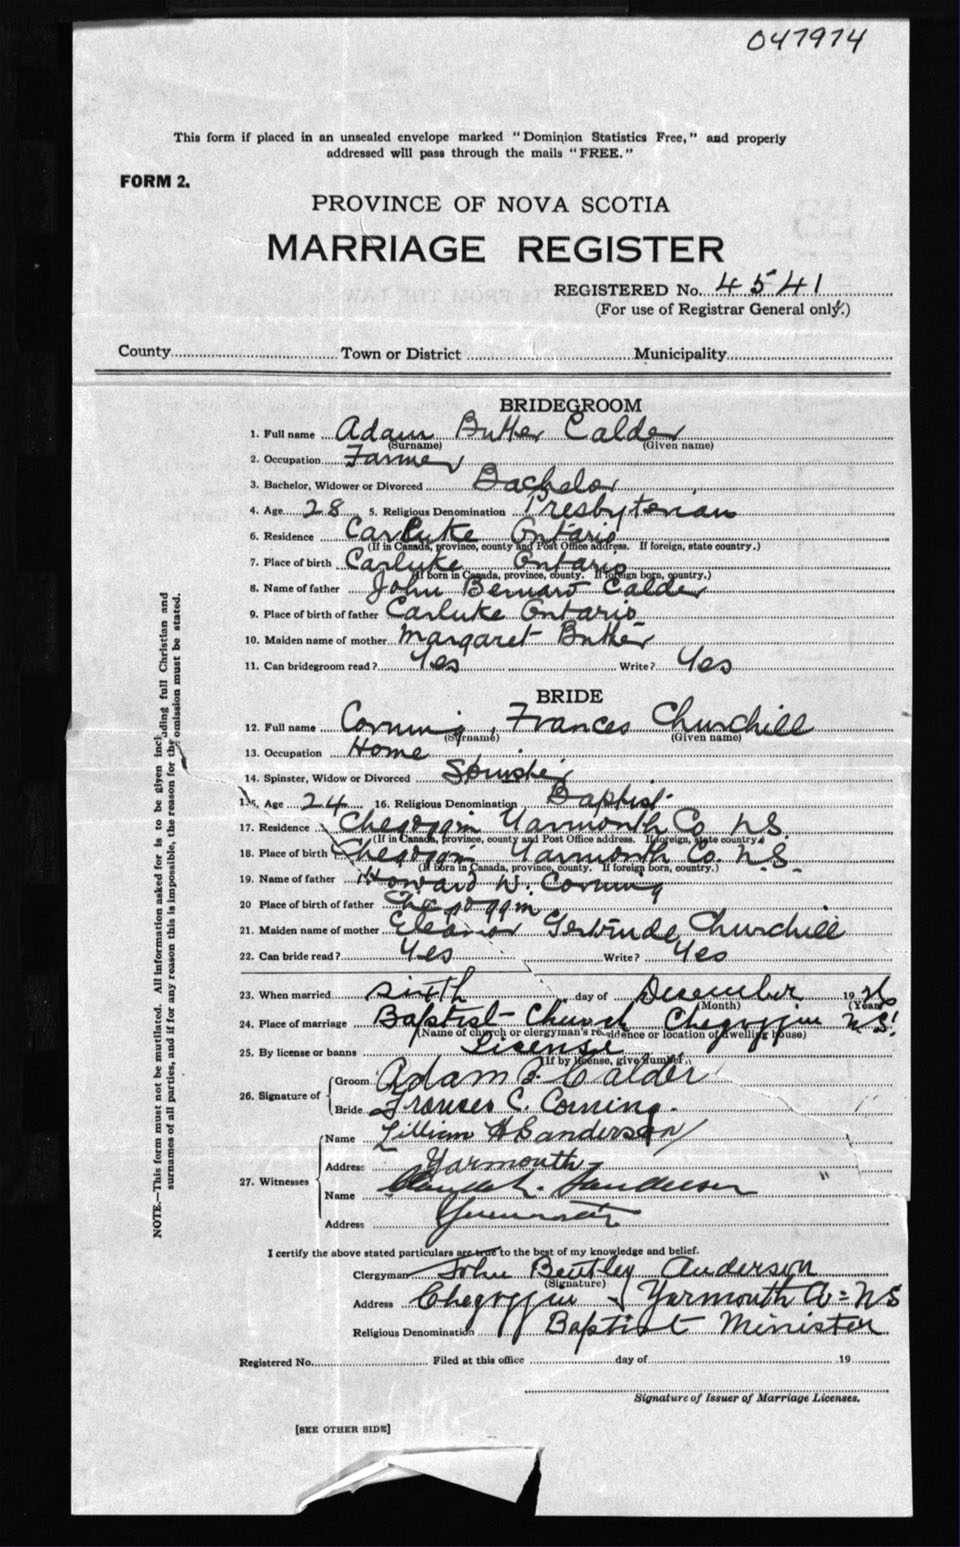 047974
This form if placed in an unsealed envelope marked "Dominion Statistics Free," and properly
addressed will pass through the mails "FREE."
FORM 2.
PROVINCE OF NOVA SCOTIA
MARRIAGE REGISTER
REGISTERED No. 4541
(For use of Registrar General only.)
County Town or District Municipality
BRIDEGROOM
1. Full name Adam Butter Calder
(Surname) (Given name)
2. Occupation Farmer
3. Bachelor, Widower or Divorced Bachelor
4. Age 28 5. Religious Denomination Presbyterian
6. Residence Carluke Ontario
(If in Canada, province, county and Post Office address. If foreign, state country.)
7. Place of birth Carluke Ontario
(If born in Canada, province, county. If foreign born, country.)
8. Name of father John Bernard Calder
9. Place of birth of father Carluke Ontario
10. Maiden name of mother Margaret Butter
11. Can bridegroom read? Yes Write? Yes
BRIDE
12. Full name Corning, Frances Churchill
(Surname) (Given name)
13. Occupation Home
14. Spinster, Widow or Divorced Spinster
15. Age 24 16. Religious Denomination Baptist
17. Residence Chegoggin Yarmouth Co. N.S.
(If in Canada, province, county and Post Office address. If foreign, state country.)
18. Place of birth Chegoggin Yarmouth Co. N.S.
(If born in Canada, province, county. If foreign born, country.)
19. Name of father Howard W. Corning
20 Place of birth of father Chegoggin
21. Maiden name of mother Eleanor Gertrude Churchill
22. Can bride read? Yes Write? Yes
23. When married sixth day of December 1926
(Month) (Year)
24. Place of marriage Baptist Church Chegoggin N.S.
(Name of church or clergyman's residence or location of dwelling house)
25. By license or banns License
(If by license, give number.)
26. Signature of
Groom Adam B Calder
Bride Frances C. Corning.
27. Witnesses
Name Lillian H Sanderson
Address Yarmouth
Name Sanderson
Address Yarmouth
I certify the above stated particulars are true to the best of my knowledge and belief.
Clergyman John Bentley Anderson
(Signature)
Address Chegoggin Yarmouth Co N S
Religious Denomination Baptist Minister
Registered No. Filed at this office day of 19
Signature of Issuer of Marriage Licenses.
[SEE OTHER SIDE]
NOTE.—This form must not be mutilated. All information asked for is to be given including full Christian and
surnames of all parties, and if for any reason this is impossible, the reason for the omission must be stated.